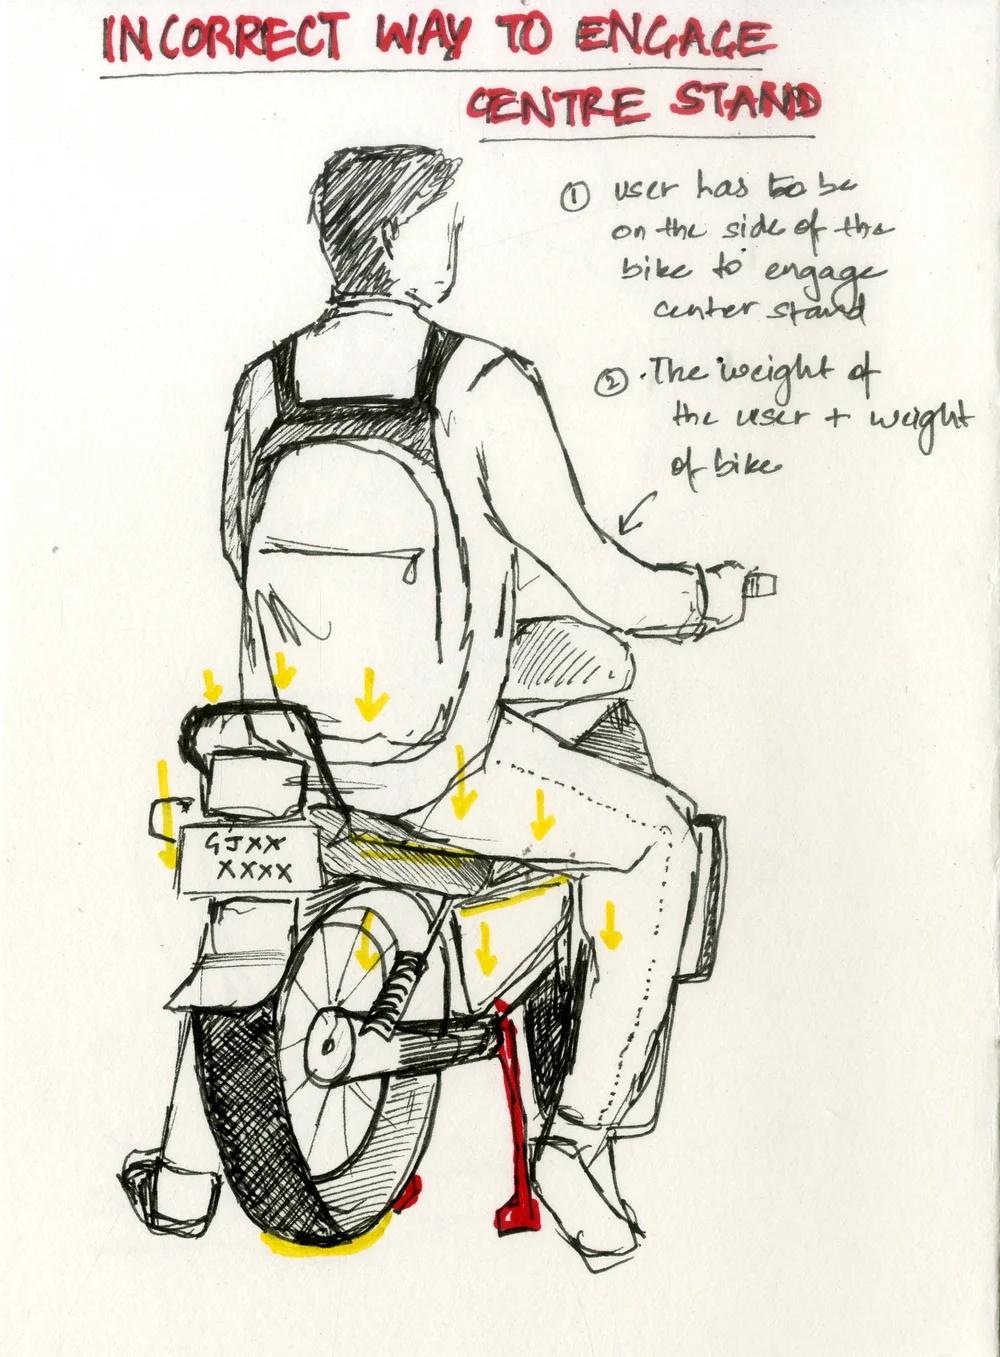 INCORRECT WAY TO ENGAGE
CENTRE STAND
① user has to be
on the side of the
bike to engage
center stand
② The weight of
the user + weight
of bike
GJXX
XXXX